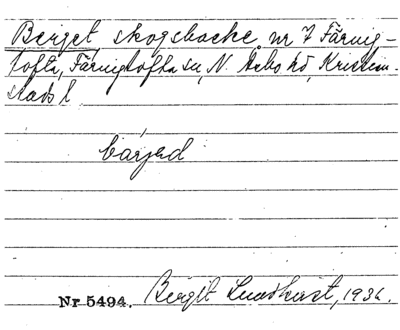 Berget skogsbacke nr 7 Färnig-
tofta, Färnigtofta sn, N. Åsbo hd, Kristian-
stads l
bárjed
Nr 5494. Birgit Lundkvist, 1936.